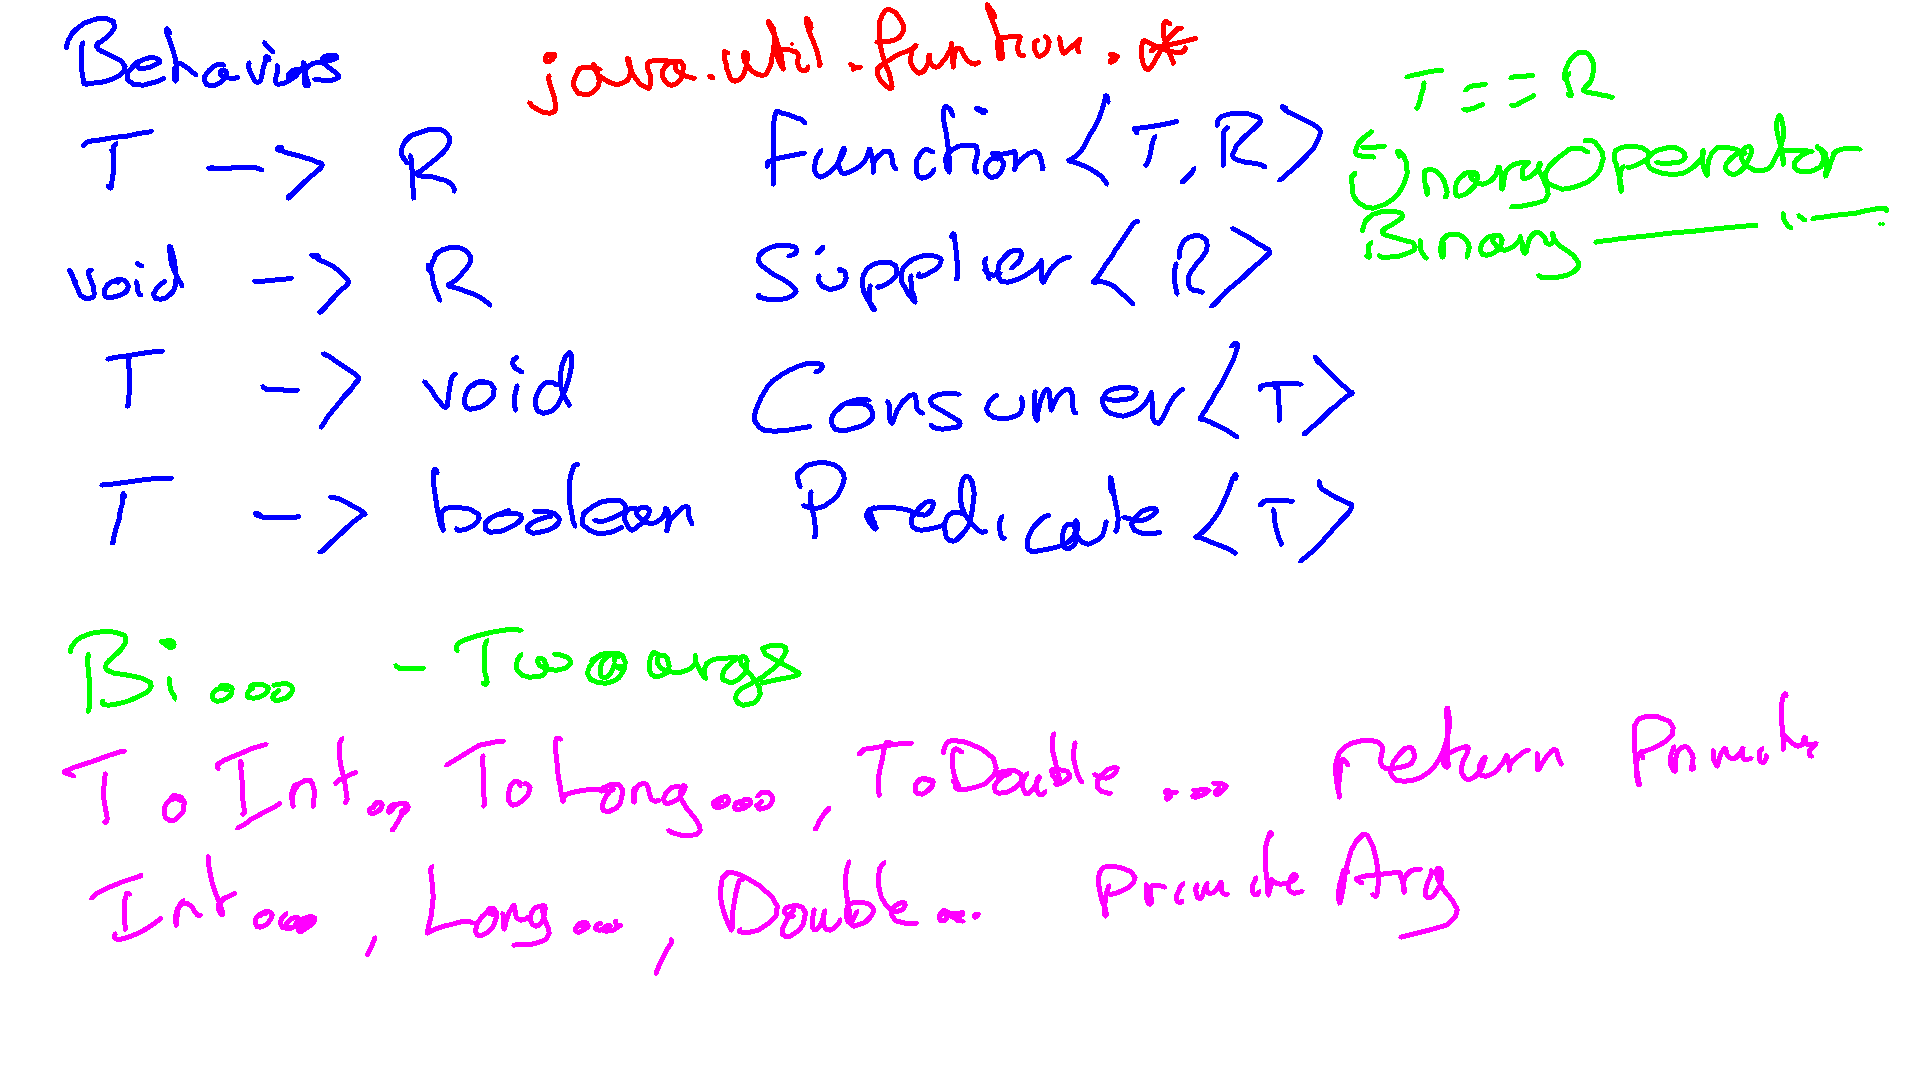 Behaviors java.util.funtion.*
T -> R Function<T,R> T == R
UnaryOperator
Binary —— " ——
void -> R Supplier<R>
T -> void Consumer<T>
T -> boolean Predicate<T>
Bi... - Two args
ToInt.., ToLong..., ToDouble ... return Primitive
Int..., Long..., Double... Primitive Arg